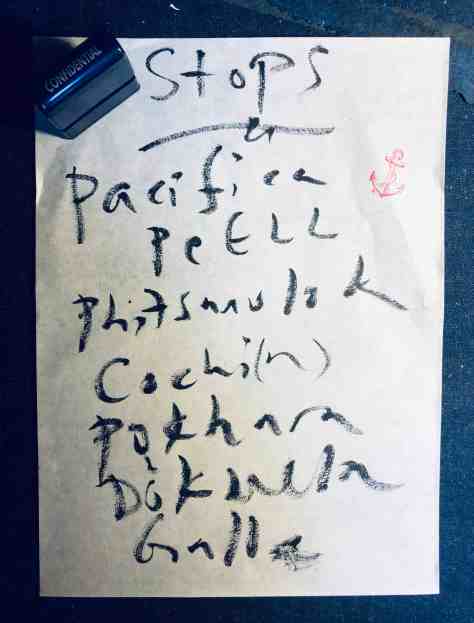 CONFIDENTIAL
Stops
Pacifica
PeELL
Phitsnulok
Cochi(n)
Pokhara
Dikwella
Galle